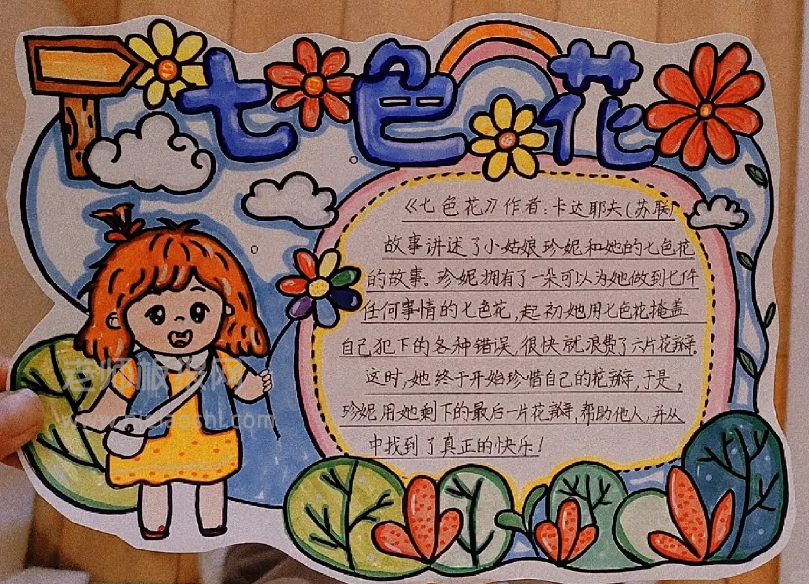 七色花
《七色花》作者:卡达耶夫(苏联)
故事讲述了小姑娘珍妮和她的七色花
的故事。珍妮拥有了一朵可以为她做到七件
任何事情的七色花,起初她用七色花掩盖
自己犯下的各种错误,很快就浪费了六片花瓣。
这时,她终于开始珍惜自己的花瓣,于是,
珍妮用她剩下的最后一片花瓣,帮助他人,并从
中找到了真正的快乐!